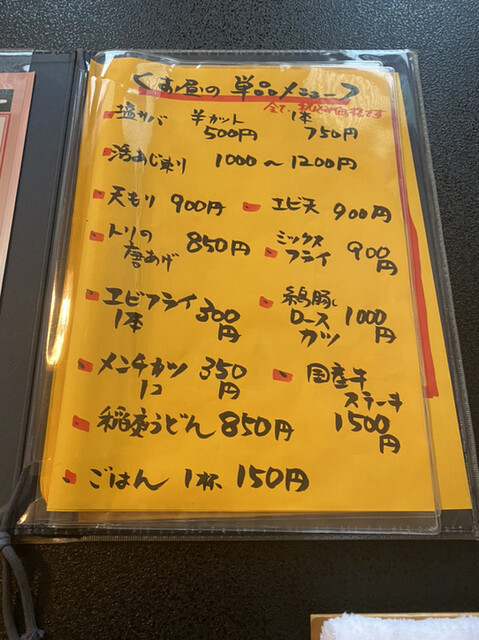 お昼の 単品メニュー
全て、税込価格です
塩サバ 半カット 500円 1本 750円
活あじ刺り 1000〜1200円
天もり 900円
エビ天 900円
トリの唐あげ 850円
ミックスフライ 900円
エビフライ 1本 300円
ロースカツ 1000円
メンチカツ 1コ 350円
国産牛ステーキ 1500円
稲庭うどん 850円
ごはん 1杯 150円